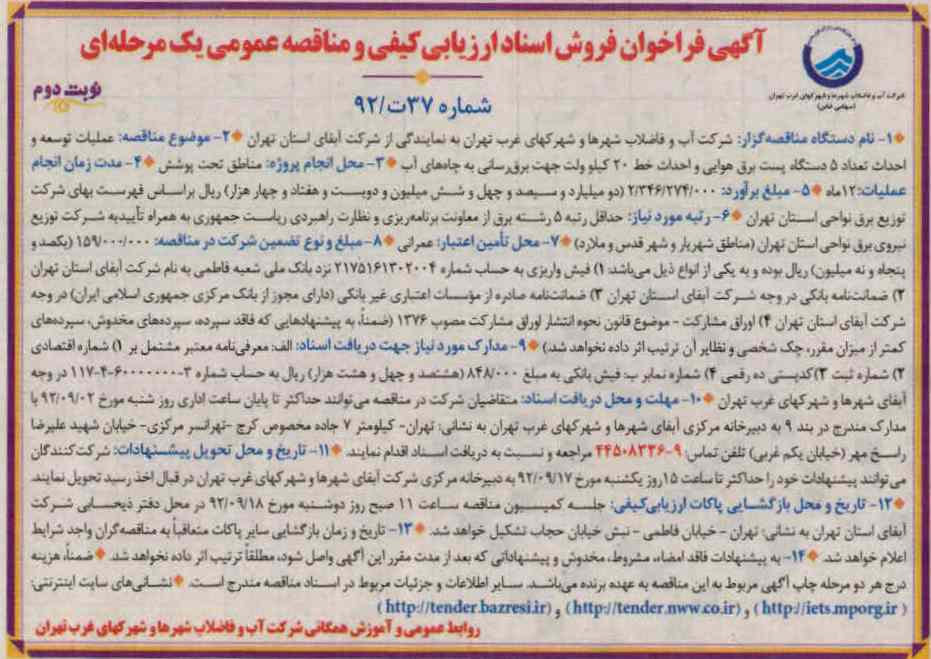 آگهی فراخوان فروش اسناد ارزیابی کیفی و مناقصه عمومی یک مرحله‌ای
شرکت آب و فاضلاب شهرها و شهرکهای غرب تهران
(سهامی خاص)
نوبت دوم
شماره ۳۷ت/۹۲
۱- نام دستگاه مناقصه‌گزار: شرکت آب و فاضلاب شهرها و شهرکهای غرب تهران به نمایندگی از شرکت آبفای استان تهران ۲- موضوع مناقصه: عملیات توسعه و
احداث تعداد ۵ دستگاه پست برق هوایی و احداث خط ۲۰ کیلو ولت جهت برق‌رسانی به چاه‌های آب ۳- محل انجام پروژه: مناطق تحت پوشش ۴- مدت زمان انجام
عملیات: ۱۲ماه ۵- مبلغ برآورد: ۲/۳۴۶/۲۷۴/۰۰۰ (دو میلیارد و سیصد و چهل و شش میلیون و دویست و هفتاد و چهار هزار) ریال براساس فهرست بهای شرکت
توزیع برق نواحی استان تهران ۶- رتبه مورد نیاز: حداقل رتبه ۵ رشته برق از معاونت برنامه‌ریزی و نظارت راهبردی ریاست جمهوری به همراه تأییدیه شرکت توزیع
نیروی برق نواحی استان تهران (مناطق شهریار و شهر قدس و ملارد) ۷- محل تأمین اعتبار: عمرانی ۸- مبلغ و نوع تضمین شرکت در مناقصه: ۱۵۹/۰۰۰/۰۰۰ (یکصد و
پنجاه و نه میلیون) ریال بوده و به یکی از انواع ذیل می‌باشد: ۱) فیش واریزی به حساب شماره ۲۱۷۵۱۶۱۳۰۲۰۰۴ نزد بانک ملی شعبه فاطمی به نام شرکت آبفای استان تهران
۲) ضمانت‌نامه بانکی در وجه شرکت آبفای استان تهران ۳) ضمانت‌نامه صادره از مؤسسات اعتباری غیر بانکی (دارای مجوز از بانک مرکزی جمهوری اسلامی ایران) در وجه
شرکت آبفای استان تهران ۴) اوراق مشارکت - موضوع قانون نحوه انتشار اوراق مشارکت مصوب ۱۳۷۶ (ضمناً، به پیشنهادهایی که فاقد سپرده، سپرده‌های مخدوش، سپرده‌های
کمتر از میزان مقرر، چک شخصی و نظایر آن ترتیب اثر داده نخواهد شد.) ۹- مدارک مورد نیاز جهت دریافت اسناد: الف: معرفی‌نامه معتبر مشتمل بر ۱) شماره اقتصادی
۲) شماره ثبت ۳)کدپستی ده رقمی ۴) شماره نمابر ب: فیش بانکی به مبلغ ۸۴۸/۰۰۰ (هشتصد و چهل و هشت هزار) ریال به حساب شماره ۳-۶۰۰۰۰۰۰۰-۴-۱۱۷ در وجه
آبفای شهرها و شهرکهای غرب تهران ۱۰- مهلت و محل دریافت اسناد: متقاضیان شرکت در مناقصه می‌توانند حداکثر تا پایان ساعت اداری روز شنبه مورخ ۹۲/۰۹/۰۲ با
مدارک مندرج در بند ۹ به دبیرخانه مرکزی آبفای شهرها و شهرکهای غرب تهران به نشانی: تهران- کیلومتر ۷ جاده مخصوص کرج -تهرانسر مرکزی- خیابان شهید علیرضا
راسخ مهر (خیابان یکم غربی) تلفن تماس: ۹-۴۴۵۰۸۳۳۶ مراجعه و نسبت به دریافت اسناد اقدام نمایند. ۱۱- تاریخ و محل تحویل پیشنهادات: شرکت‌کنندگان
می‌توانند پیشنهادات خود را حداکثر تا ساعت ۱۵روز یکشنبه مورخ ۹۲/۰۹/۱۷ به دبیرخانه مرکزی شرکت آبفای شهرها و شهرکهای غرب تهران در قبال اخذ رسید تحویل نمایند.
۱۲- تاریخ و محل بازگشایی پاکات ارزیابی‌کیفی: جلسه کمیسیون مناقصه ساعت ۱۱ صبح روز دوشنبه مورخ ۹۲/۰۹/۱۸ در محل دفتر ذیحسابی شرکت
آبفای استان تهران به نشانی: تهران - خیابان فاطمی - نبش خیابان حجاب تشکیل خواهد شد. ۱۳- تاریخ و زمان بازگشایی سایر پاکات متعاقباً به مناقصه‌گران واجد شرایط
اعلام خواهد شد. ۱۴- به پیشنهادات فاقد امضاء، مشروط، مخدوش و پیشنهاداتی که بعد از مدت مقرر این آگهی واصل شود، مطلقاً ترتیب اثر داده نخواهد شد. ضمناً، هزینه
درج هر دو مرحله چاپ آگهی مربوط به این مناقصه به عهده برنده می‌باشد. سایر اطلاعات و جزئیات مربوط در اسناد مناقصه مندرج است. نشانی‌های سایت اینترنتی:
( http://iets.mporg.ir ) و (http://tender.nww.co.ir ) و ( http://tender.bazresi.ir )
روابط عمومی و آموزش همگانی شرکت آب و فاضلاب شهرها و شهرکهای غرب تهران